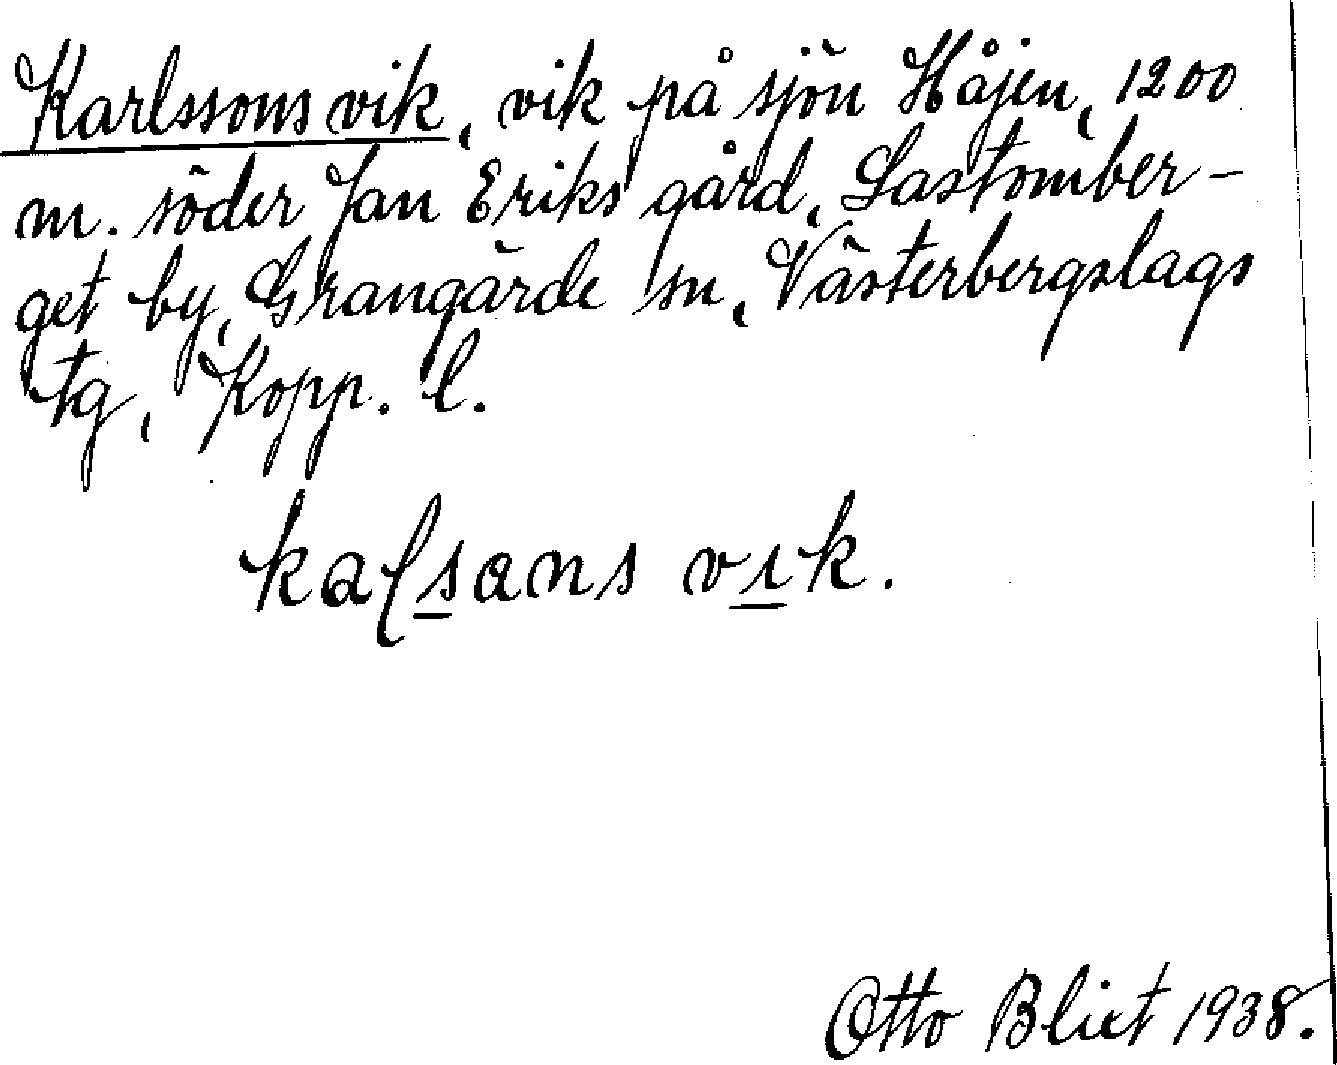 Karlssons vik, vik på sjön Håjen, 1200
m. söder Jan Eriks gård, Lastomber-
get by, Grangärde sn, Västerbergslags
tg, Kopp. l.
kaſsans vık.
Otto Blixt 1938.